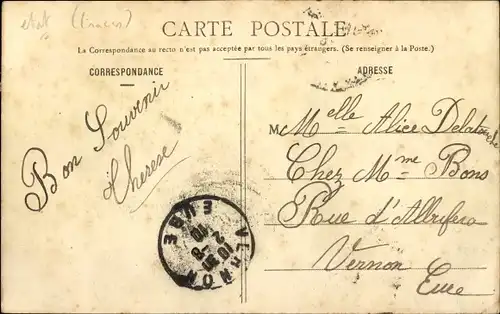 CARTE POSTALE
La Correspondance au recto n'est pas acceptée par tous les pays étrangers. (Se renseigner à la Poste.)
CORRESPONDANCE
Bon Souvenir
Therese
ADRESSE
M Melle Alice
Chez Mme Bons
Rue
Vernon
Eure
VERNON
EURE